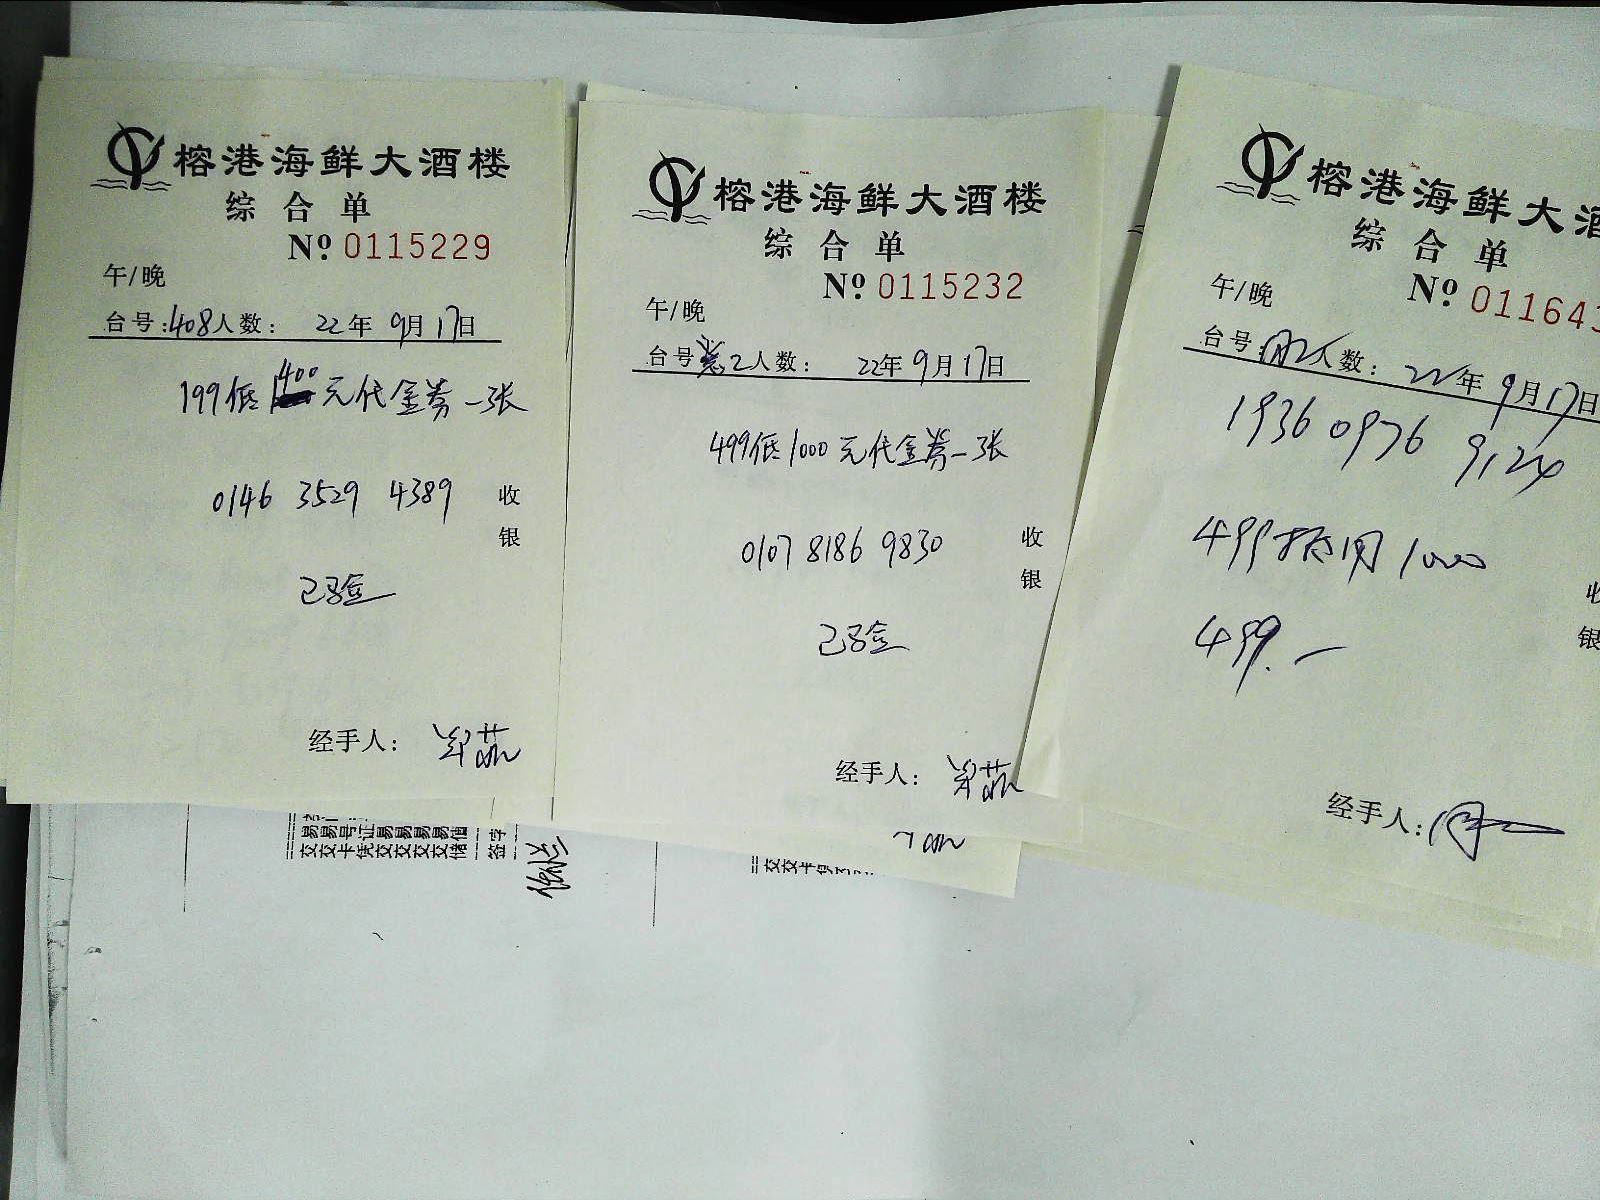 榕港海鲜大酒楼
综合单
№ 0115229
午/晚
台号:408人数: 22年9月17日
199低400元代金券一张
0146 3529 4389
收
银
已验
经手人:
榕港海鲜大酒楼
综合单
№ 0115232
午/晚
台号 2人数: 22年9月17日
499低1000元代金券一张
0107 8186 9830
收
银
已验
经手人:
榕港海鲜大酒
综合单
№ 011643
午/晚
台号: 人数: 22年9月17日
1936 0976 9124
499抵用1000
499.—
收
银
经手人: